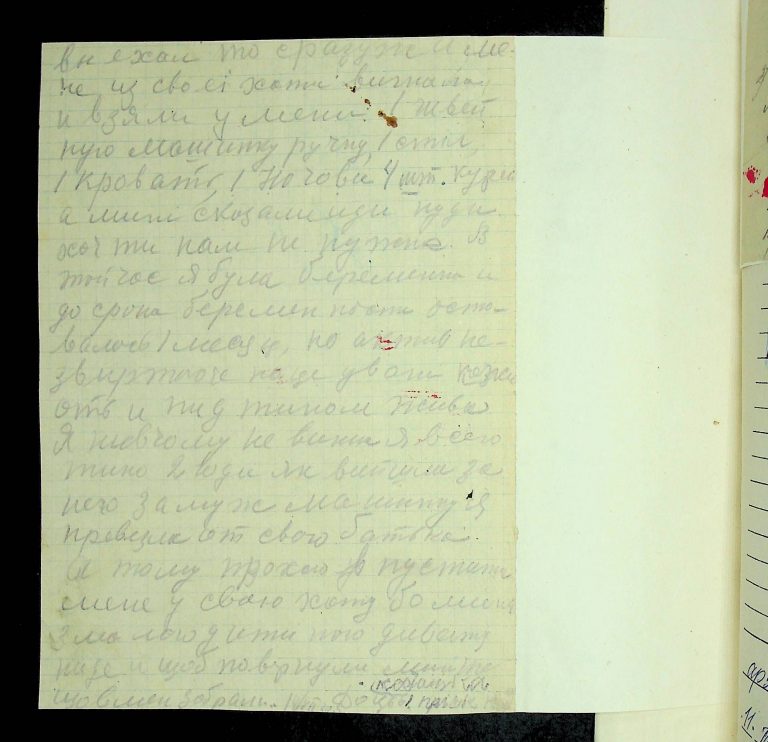 виехал то сразуж и ме-
не из своеї хати вигнали
и взяли у мени 1 швей
ную машинку ручну, 1 стіл,
1 кровать, 1 ночови 4 шт. курей
а мині сказали иди куди
хоч ти нам не нужна. В
той час я була беременна и
до срока беременности оста-
валось 1 месяц, но актив не-
звиртаючи на це уваги
и під тином живи
Я нівчому не винна я всего
тико 2 годи як вийшла за
него замуж машинку я
привезла от свого батька.
А тому прохаю пустити
мене у свою хату бо мині
з малою дитиною диватця
нide и щоб повернули мині
що вмен забрали.